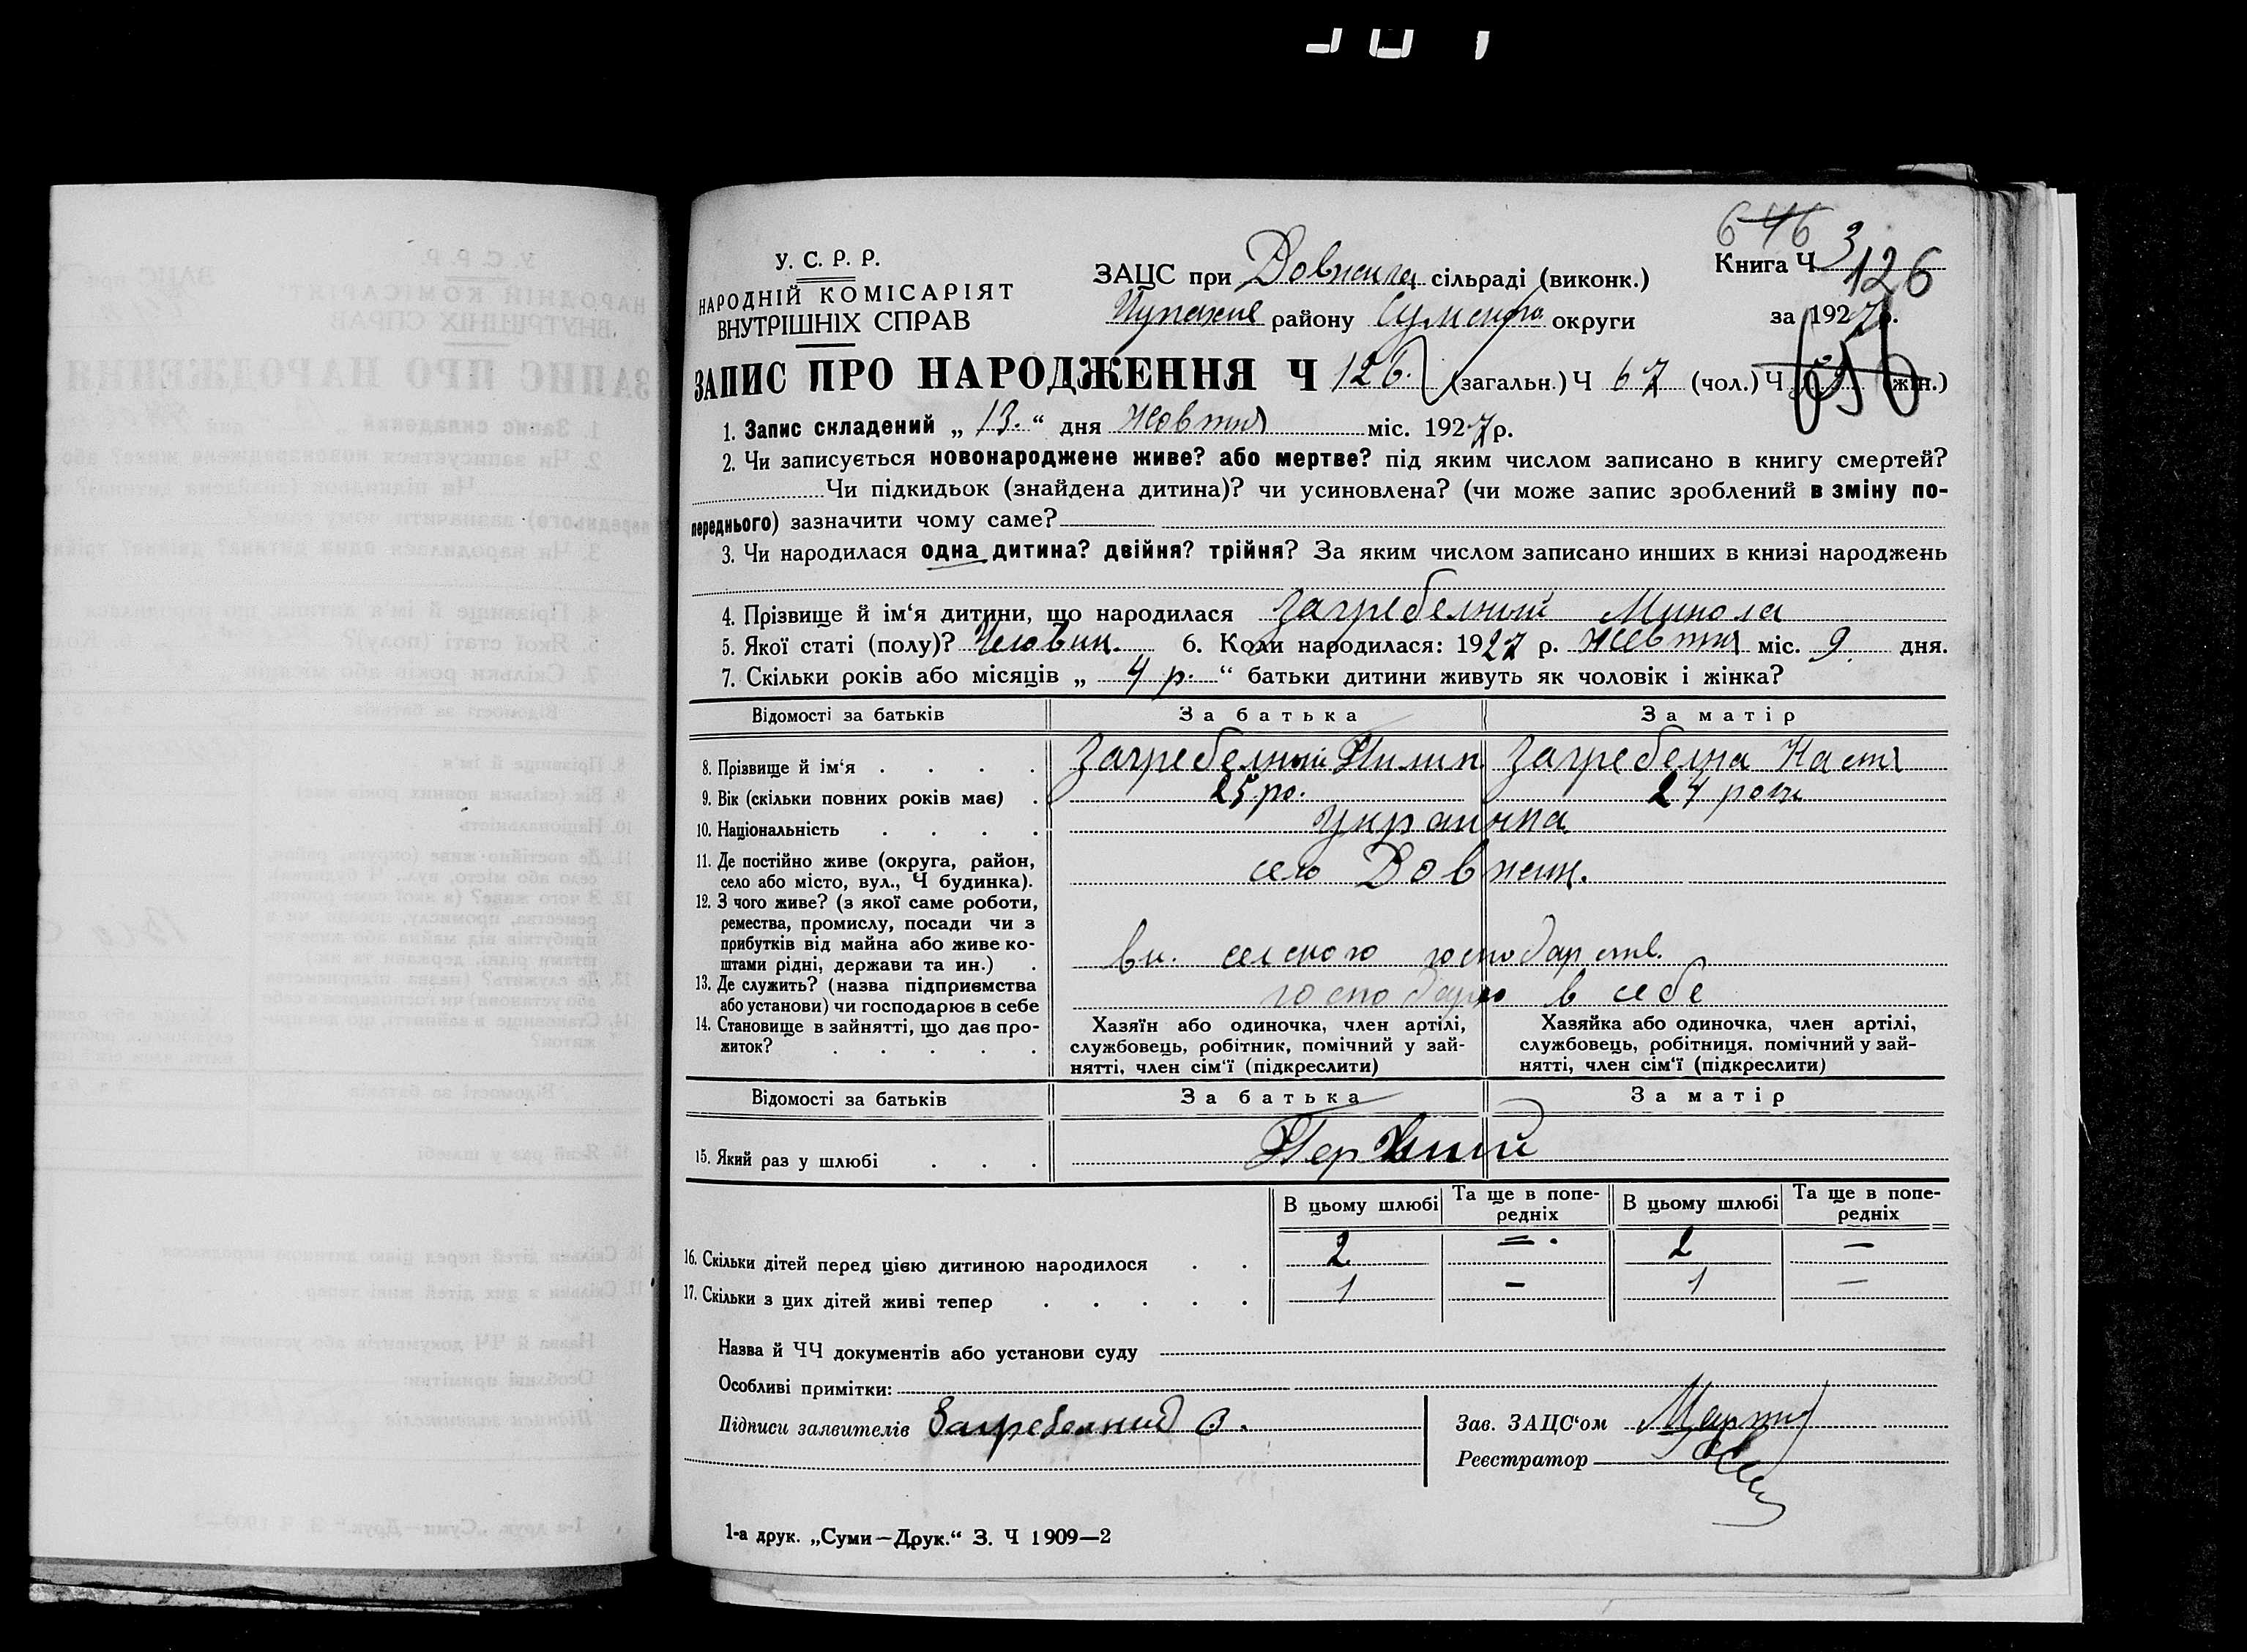 646
У. С. Р. Р.
НАРОДНІЙ КОМІСАРІЯТ
ВНУТРІШНІХ СПРАВ
ЗАЦС при Довжиц сільраді (виконк.)
району Сумської округи
Книга Ч 3
126
за 1927 р.
ЗАПИС ПРО НАРОДЖЕННЯ Ч 126. (загальн.) Ч 67 (чол.) Ч (жін.)
1. Запис складений „ 13. “ дня Жовтня міс. 1927 р.
2. Чи записується новонароджене живе? або мертве? під яким числом записано в книгу смертей?
Чи підкидьок (знайдена дитина)? чи усиновлена? (чи може запис зроблений в зміну по-
переднього) зазначити чому саме?
3. Чи народилася одна дитина? двійня? трійня? За яким числом записано инших в книзі народжень
4. Прізвище й ім‘я дитини, що народилася Загребелний Микола
5. Якої статі (полу)? Чоловик. 6. Коли народилася: 1927 р. жовтня міс. 9 дня.
7. Скільки років або місяців „ 4 р. “ батьки дитини живуть як чоловік і жінка?
Відомості за батьків За батька За матір
8. Прізвище й ім‘я Загребелний Пилип Загребелна Настя
9. Вік (скільки повних років має) 25 ро. 24 роки
10. Національність Украинка
11. Де постійно живе (округа, район,
село або місто, вул., Ч будинка). село Довжик.
12. З чого живе? (з якої саме роботи,
ремества, промислу, посади чи з
прибутків від майна або живе ко-
штами рідні, держави та ин.) сельского господарств.
13. Де служить? (назва підприємства
або установи) чи господарює в себе господарю в себе
14. Становище в зайнятті, що дає про-
житок?
Хазяїн або одиночка, член артілі,
службовець, робітник, помічний у зай-
нятті, член сім‘ї (підкреслити)
Хазяйка або одиночка, член артілі,
службовець, робітниця, помічний у зай-
нятті, член сім‘ї (підкреслити)
Відомості за батьків За батька За матір
15. Який раз у шлюбі Перший
В цьому шлюбі Та ще в попе-
редніх В цьому шлюбі Та ще в попе-
редніх
16. Скільки дітей перед цією дитиною народилося 2 = . 2 —
17. Скільки з цих дітей живі тепер 1 — 1 —
Назва й ЧЧ документів або установи суду
Особливі примітки:
Підписи заявителів Загребелний
Зав. ЗАЦС‘ом
Реєстратор
1-а друк. „Суми—Друк.“ З. Ч 1909—2